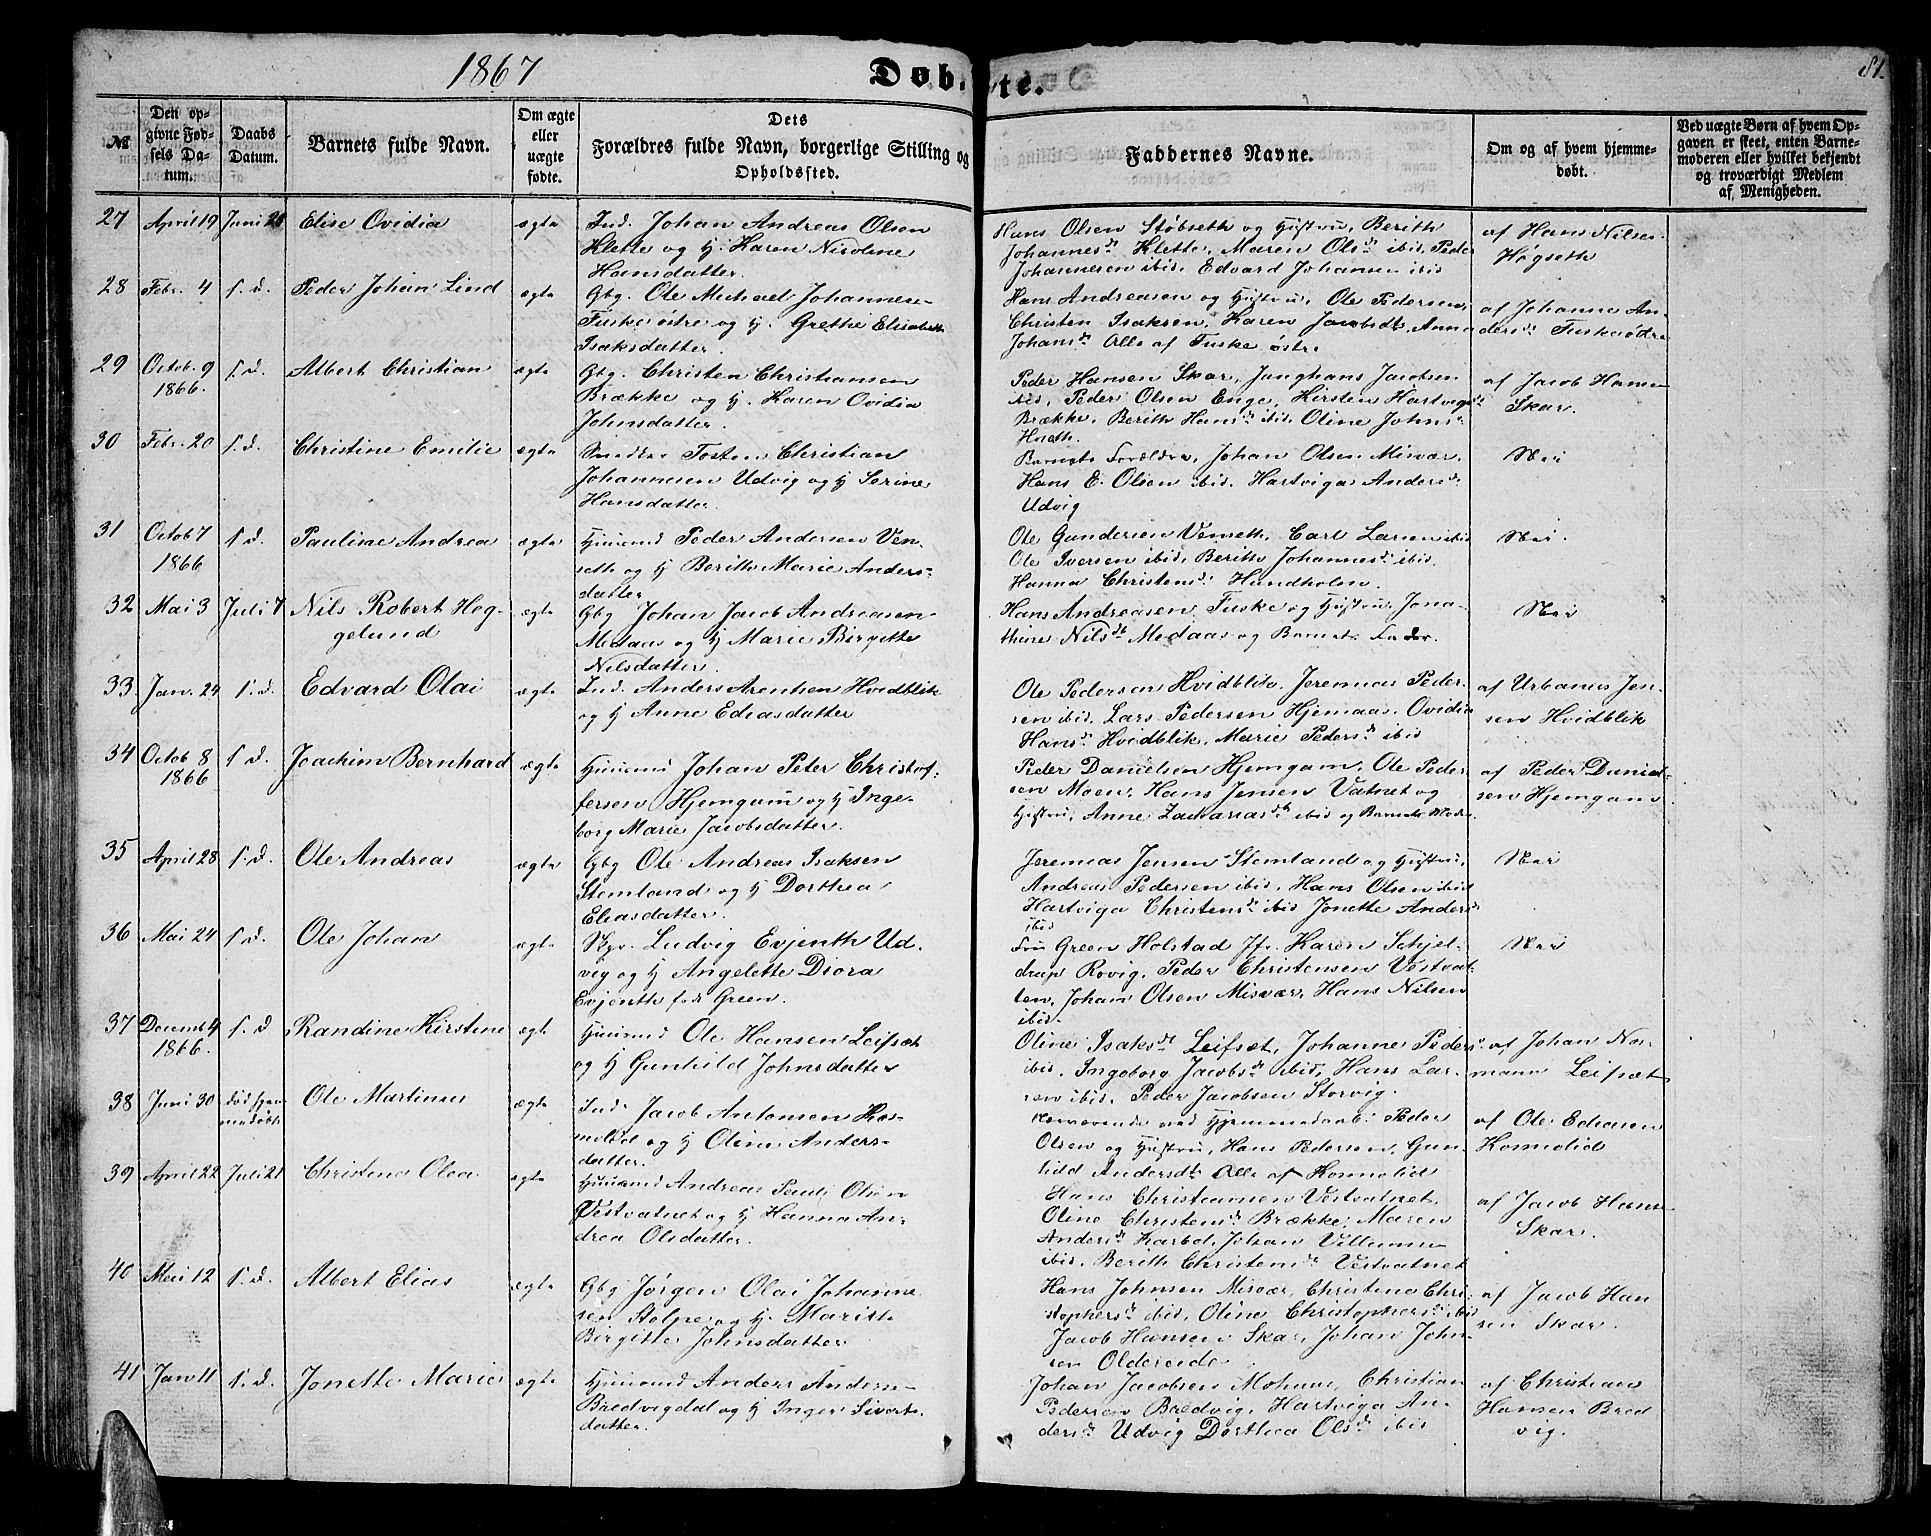 1867
Døbte.
81.
№
Den op-
givne Fød-
sels Da-
tum.
Daabs
Datum.
Barnets fulde Navn.
Om ægte
eller
uægte
fødte.
Dets
Forældres fulde Navn, borgerlige Stilling og
Opholdssted.
Faddernes Navne.
Om og af hvem hjemme-
døbt.
Ved uægte Børn af hvem Op-
gaven er skeet, enten Barne-
moderen eller hvilket bekjendt
og troværdigt Medlem
af Menigheden.
27 April 19 Juni Elise Ovidia ægte
Ind. Johan Andreas Olsen
Klette og H. Karen Nicoline
Hansdatter.
Hans Olsen Støbseth og Hustru, Berith
Johannesdr. Klette, Maren Olsdr. ibid, Peder
Johannesen ibid, Edvard Johansen ibid
af Hans Nilsen
Høgseth
28 Febr. 4 s. d. Peder Johan Lind ægte
Gbg. Ole Michael Johannesen
Fuske østre og H. Grethe Elisabeth
Isaksdatter.
Hans Andreasen og Hustru, Ole Pedersen,
Christen Isaksen, Karen Jacobsdt, Anna
Johansdr. Alle af Fuske østre
af Johanne An-
dersdr. Fuskeødre
29 Octob. 9
1866. s. d. Albert Christian ægte
Gbg. Christen Christiansen
Brække og H. Karen Ovidia
Johnsdatter.
Peder Hansen Skar, Junghans Jacobsen
ibid, Peder Olsen Enge, Kirsten Hartvigsdr
Brække, Berith Hansdr ibid, Oline Johnsdr
af Jacob Hansen
Skar.
30 Febr. 20 s. d. Christine Emilie ægte
Tosten Christian
Johannesen Udvig og H Serine
Hansdatter.
Barnets Forældre, Johan Olsen Misvær,
Hans E. Olsen ibid. Hartviga Andersdr
Udvig
Nei
31 Octob 7
1866 s. d. Pauline Andrea ægte
Huusmd Peder Andersen Ven-
seth og H Berith Marie Anders-
datter
Ole Gundersen Venseth, Carl Larsen ibid
Ole Iversen ibid, Berith Johannesdr ibid.
Hanna Christensdr Hundholm.
Nei.
32 Mai 3 Juli 7 Nils Robert Hag-
gelund ægte
Gbg Johan Jacob Andreasen
Medaas og H Marie Birgitte
Nilsdatter.
Hans Andreasen, Fuske og Hustru, Jona-
thine Nilsdr Medaas og Barnets Fader.
Nei
33 Jan. 24 s. d. Edvard Olai ægte
Ind. Anders Arentsen Hvidblik
og H Anne Ediasdatter
Ole Pedersen Hvidblik, Jeremias Peder-
sen ibid, Lars Pedersen Hjemaas, Ovidia
Hansdr Hvidblik, Marie Pedersdr ibid
af Urbanus Jen-
sen Hvidblik
34 Octob 8
1866 s. d. Joachim Bernhard ægte
Huusmd Johan Peter Christof-
fersen Hjemgam og H Inge-
borg Marie Jacobsdatter.
Peder Danielsen Hjemgam, Ole Peder-
sen Moen, Hans Jensen Vatnet og
Hustru, Anne Zachariasdr ibid og Barnets Moder
af Peder Daniel-
sen Hjemgam
35 April 28 s. d. Ole Andreas ægte
Gbg Ole Andreas Isaksen
Stemland og H Dorthea
Eliasdatter.
Jeremias Jensen Stemland og Hustru,
Andreas Pedersen ibid, Hans Olsen ibid
Hartviga Christensdr ibid Jonette Andersdr
ibid
Nei
36 Mai 24 s. d. Ole Johan ægte
Ludvig Evjenth Ud-
vig og H Angelette Diora
Evjenth fød Green.
Fru Green Holstad Jfr. Karen Schjel-
drup Rovig, Peder Christensen Vestvat-
ten, Johan Olsen Misvær, Hans Nilsen
ibid.
Nei
37 Decemb 4
1866. s. d Randine Kirstine ægte
Huusmd Ole Hansen Leifset
og H Gunhild Johnsdatter
Oline Isaksdr Leifset, Johanne Pedersdr
ibid, Ingeborg Jacobsdr ibid, Hans Lar-
sen ibid. Peder Jacobsen Storvig.
af Johan Nor-
mann Leifset
38 Juni 30 død hjem-
medøbt Ole Martinus ægte
Ind. Jacob Antonsen Kos-
molid og H Oline Anders-
datter.
Nærværende ved Hjemmedaab: Peder
Olsen og Hustru, Hans Pedersen, Gun-
hild Andersdtr Alle af Kosmolid
af Ole Ediasen
Kosmolid
39 April 22 Juli 21 Christine Olea ægte
Huusmd Andreas Paul Olsen
Vestvatnet og H Hanna An-
drea Olsdatter.
Hans Christiansen Vestvatnet,
Oline Christensdr Brække, Maren
Andersdr Karbøl, Johan Villumsen
ibid, Berith Christensdr Vestvatnet
af Jacob Hansen
Skar.
40 Mai 12 s. d. Albert Elias ægte
Gbg Jørgen Olai Johanne-
sen Stolpe og H. Marith
Birgitte Johnsdatter
Hans Johnsen Misvær, Christine Chri-
stophersdr ibid, Oline Christophersdr ibid
Jacob Hansen Skar, Johan John-
sen Oldereide
af Jacob Han
sen Skar.
41 Jan 11 s. d. Jonette Marie ægte
Huusmd Anders Andersen
Bredvigdal og H Inger Sivert-
datter.
Johan Jacobsen Mohuus, Christian
Pedersen Bredvig, Hartviga An-
dersdr Udvig Dorthea Olsdr ibid
af Christian
Hansen Bred
vig.